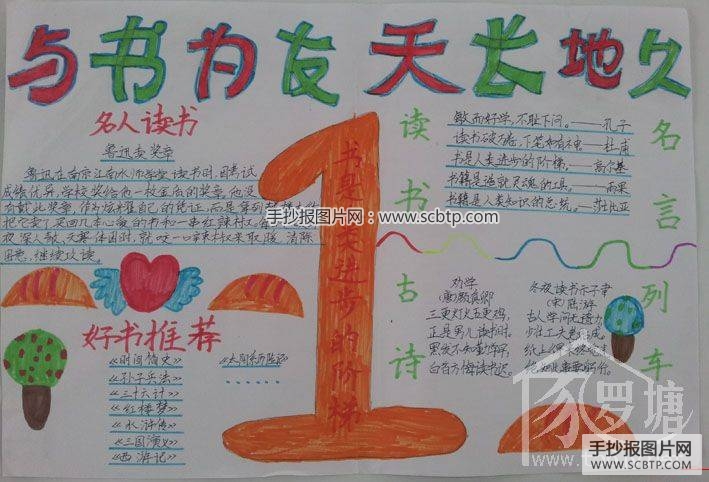 与书为友 天长地久
名人读书
鲁迅卖奖章
鲁迅在南京江南水师学堂读书时，因考试
成绩优异，学校奖给他一枚金质的奖章。他没
把它卖了
夜深人静，天寒体困时，就咬一口
困意，继续攻读。
书是 进步的阶梯
读书古诗
名言列车
敏而好学，不耻下问。——孔子
读书破万卷，下笔如有神——杜甫
书是人类进步的阶梯。——高尔基
书籍是造就灵魂的工具。——雨果
书籍是人类知识的总统。——莎士比亚
手抄报图片网：www.scbtp.com
劝学
(唐)颜真卿
三更灯火五更鸡，
正是男儿读书时。
黑发不知勤学早，
白首方悔读书迟。
冬夜读书示子聿
(宋)陆游
古人学问无遗力
少壮工夫 成。
纸上
好书推荐
《时间简史》
《孙子兵法》
《三十六计》
《红楼梦》
《水浒传》
《三国演义》
《西游记》
《太阳系历险记》
罗塘
手抄报图片网
WWW.SCBTP.COM